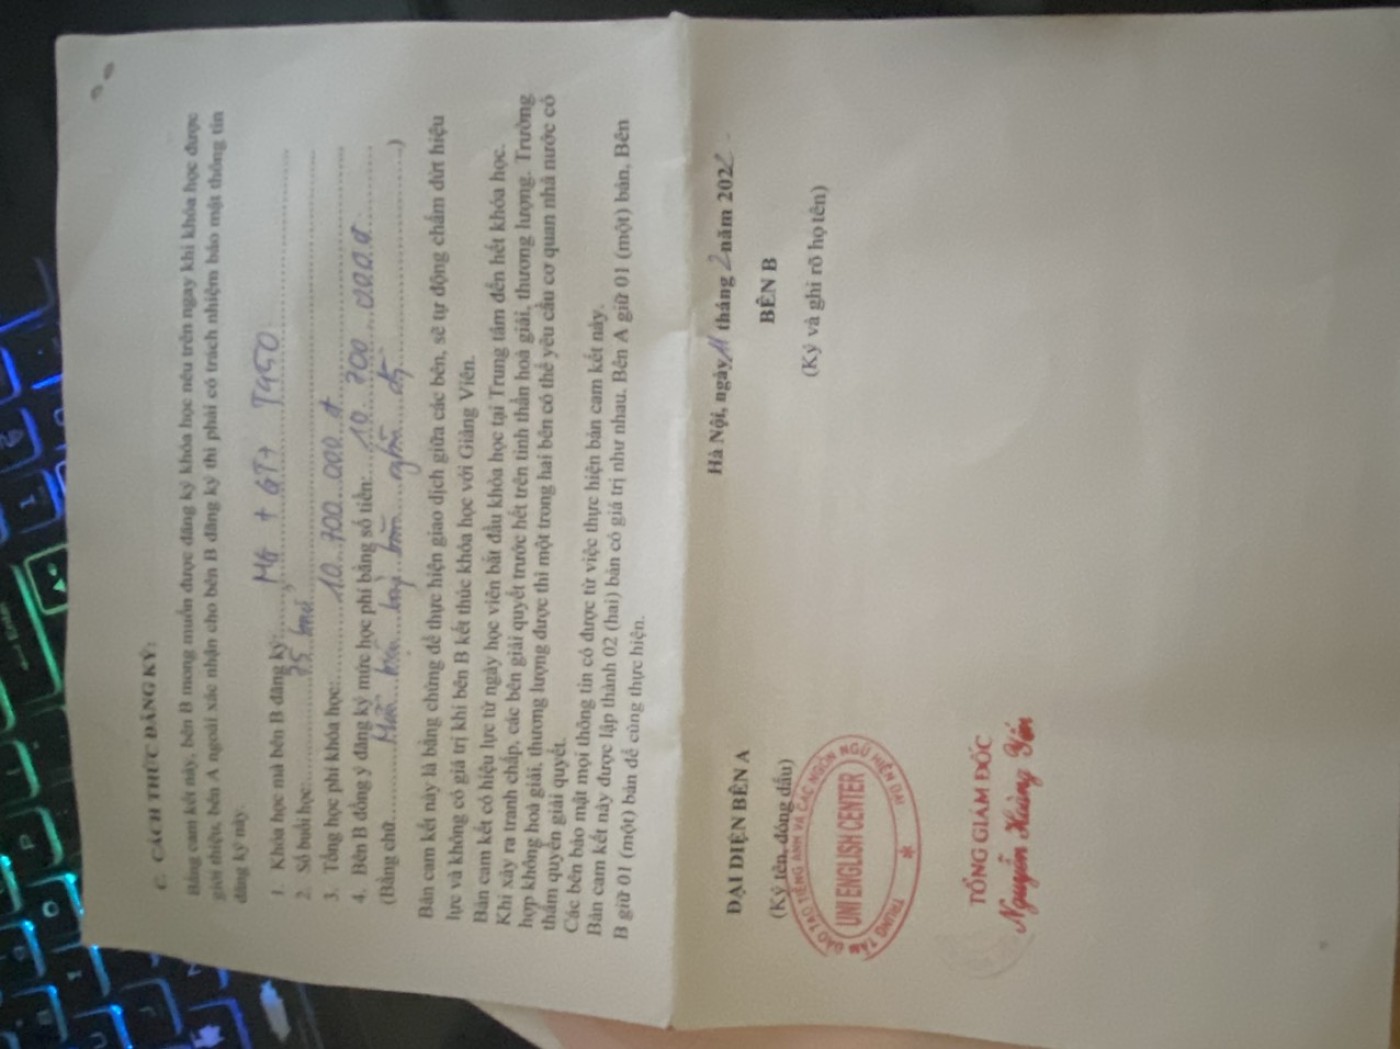 C. CÁCH THỨC ĐĂNG KÝ:
Bằng cam kết này, bên B mong muốn được đăng ký khóa học nêu trên ngay khi khóa học được
giới thiệu, bên A ngoài xác nhận cho bên B đăng ký thì phải có trách nhiệm bảo mật thông tin
đăng ký này.
1. Khóa học mà bên B đăng ký: MG + GT+ T450
2. Số buổi học: 75 buổi
3. Tổng học phí khóa học: 10.700.000 đ
4. Bên B đồng ý đăng ký mức học phí bằng số tiền: 10.700.000 đ
(Bằng chữ Mười triệu bảy trăm nghìn đồng)
Bản cam kết này là bằng chứng để thực hiện giao dịch giữa các bên, sẽ tự động chấm dứt hiệu
lực và không có giá trị khi bên B kết thúc khóa học với Giảng Viên.
Bản cam kết có hiệu lực từ ngày học viên bắt đầu khóa học tại Trung tâm đến hết khóa học.
Khi xảy ra tranh chấp, các bên giải quyết trước hết trên tinh thần hoà giải, thương lượng. Trường
hợp không hoà giải, thương lượng được thì một trong hai bên có thể yêu cầu cơ quan nhà nước có
thẩm quyền giải quyết.
Các bên bảo mật mọi thông tin có được từ việc thực hiện bản cam kết này.
Bản cam kết này được lập thành 02 (hai) bản có giá trị như nhau. Bên A giữ 01 (một) bản, Bên
B giữ 01 (một) bản để cùng thực hiện.
Hà Nội, ngày 11 tháng 2 năm 2022
ĐẠI DIỆN BÊN A
BÊN B
(Ký tên, đóng dấu)
(Ký và ghi rõ họ tên)
TRUNG TÂM ĐÀO TẠO TIẾNG ANH VÀ CÁC NGÔN NGỮ HIỆN ĐẠI
UNI ENGLISH CENTER
TỔNG GIÁM ĐỐC
Nguyễn Hoàng Yến